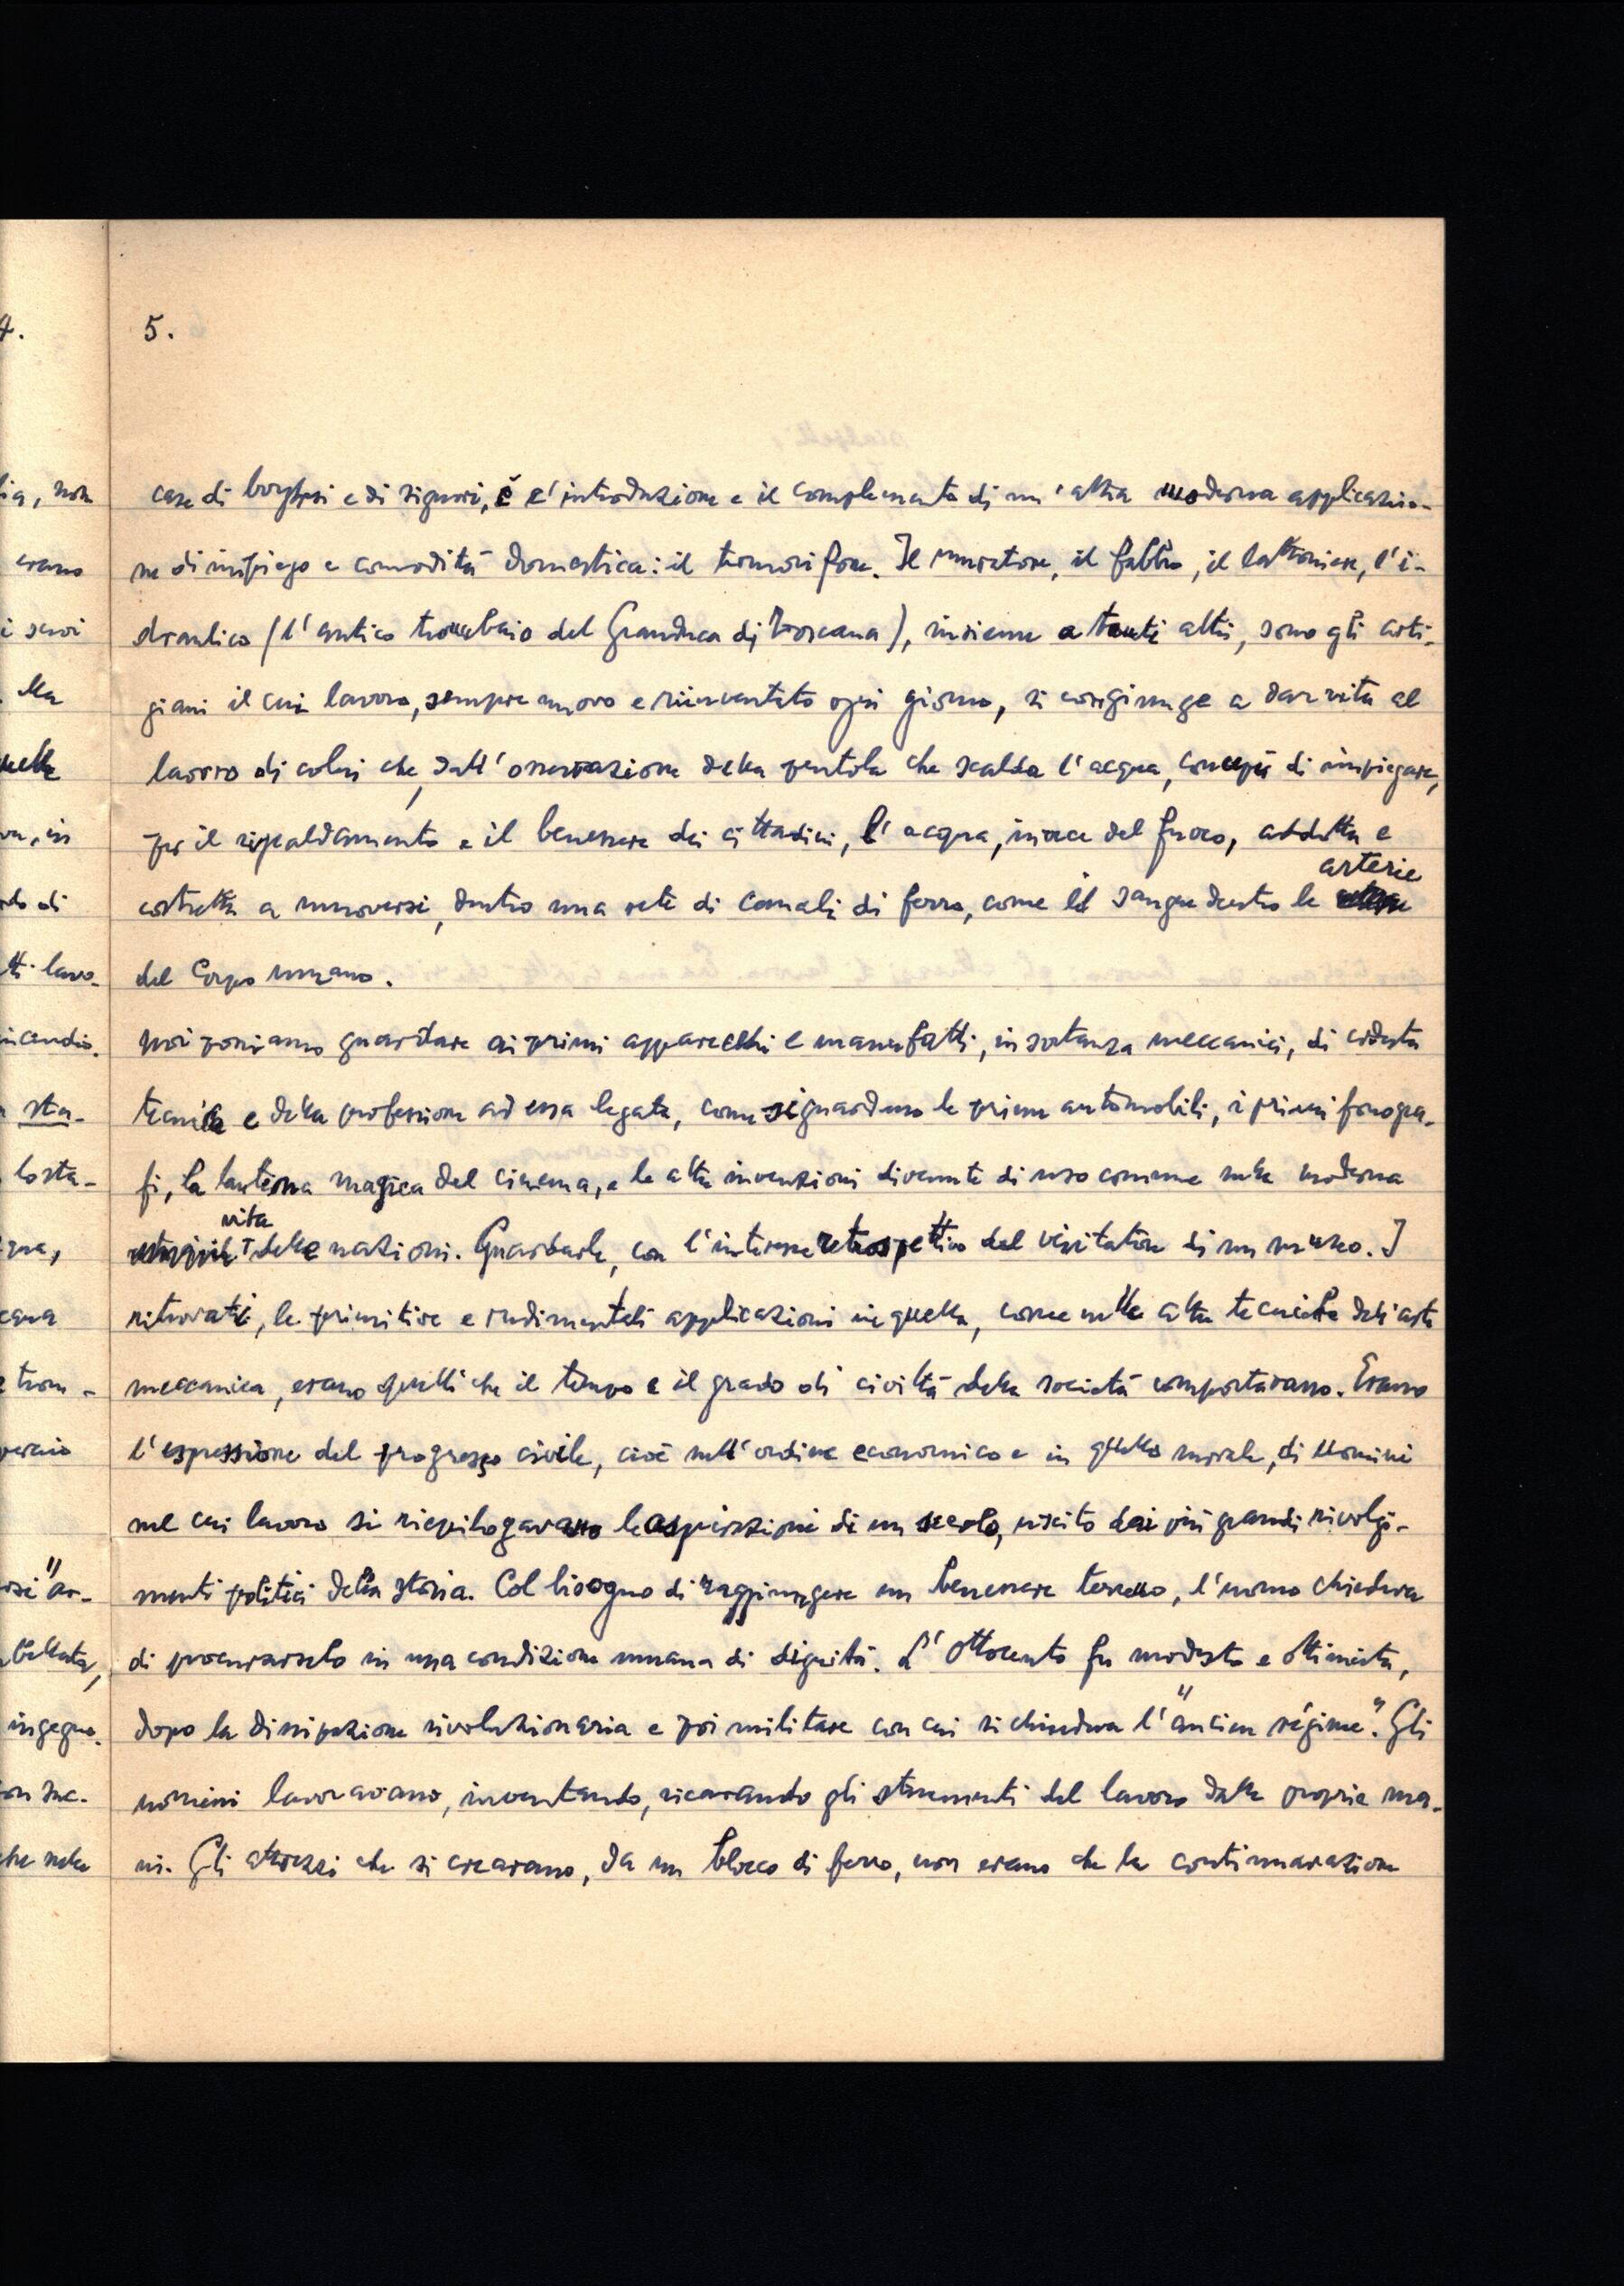 5.
case di borghesi e di signori, è l'introduzione e il complemento di un'altra moderna applicazio-
ne di impiego e comodità domestica: il termosifone. Il muratore, il fabbro, il lattoniere, l'i-
draulico (l'antico trombaio del Granduca di Toscana), insieme a tanti altri, sono gli arti-
giani il cui lavoro, sempre nuovo e reinventato ogni giorno, si congiunge a dar vita al
lavoro di colui che, dall'osservazione della pentola che scalda l'acqua, concepì di impiegare,
per il riscaldamento e il benessere dei cittadini, l'acqua, invece del fuoco, addetta e
arterie
costretta a muoversi, dentro una rete di canali di ferro, come il sangue dentro le
del corpo umano.
Noi possiamo guardare ai primi apparecchi e manufatti, in sostanza meccanici, di codesta
tecnica e della professione ad essa legata, come si guardano le prime automobili, i primi fonogra-
fi, la lanterna magica del cinema, e le altre invenzioni divenute di uso comune nella moderna
vita
delle nazioni. Guardarle, con l'interesse retrospettivo del visitatore di un museo. I
ritrovati, le primitive e rudimentali applicazioni in quella, come nelle altre tecniche dell'arte
meccanica, erano quelli che il tempo e il grado di civiltà della società comportavano. Erano
l'espressione del progresso civile, cioè nell'ordine economico e in quello morale, di uomini
nel cui lavoro si riepilogavano le aspirazioni di un secolo, uscito dai più grandi rivolgi-
menti politici della storia. Col bisogno di raggiungere un benessere terreno, l'uomo chiedeva
di procurarselo in una condizione umana di dignità. L'Ottocento fu modesto e ottimista,
dopo la dissipazione rivoluzionaria e poi militare con cui si chiudeva l'"ancien régime". Gli
uomini lavoravano, inventando, ricavando gli strumenti del lavoro dalle proprie ma-
ni. Gli attrezzi che si creavano, da un blocco di ferro, non erano che la continuazione